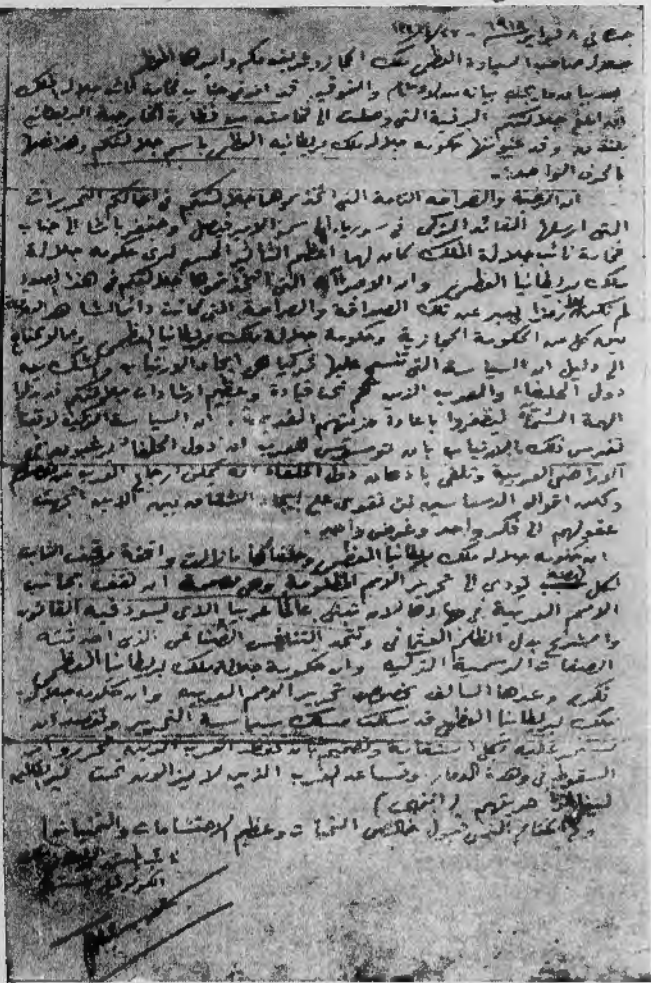 جدة في ٨ فبراير ١٩١٨
جلالة صاحب السيادة العظمى ملك الحجاز وشريف مكة وأميرها المعظم
بعد بيان ما يجب بيانه من الاحتشام والتوقير قد أمرني جناب فخامة نائب جلالة الملك
أن أبلغ جلالتكم البرقية التي وصلت إلى فخامته من نظارة الخارجية البريطانية
بلندن وقد عنونتها حكومة جلالة ملك بريطانيا العظمى باسم جلالتكم وهذا نصها
بالحرف الواحد:
ان الرغبة والصراحة التامة التي اتخذتموها جلالتكم في ارسالكم التحريرات
التي ارسلها القائد التركي في سوريا إلى سمو الامير فيصل وجعفر باشا إلى جناب
فخامة نائب جلالة الملك كان لها أعظم التأثير الحسن لدى حكومة جلالة
ملك بريطانيا العظمى وان الاجراآت التي اتخذتموها جلالتكم في هذا الصدد
لم تكن الا رمزا يعبر عن تلك الصداقة والصراحة التي كانت دائما
بين كل من الحكومة الحجازية وحكومة جلالة ملك بريطانيا العظمى ومما لا يحتاج
إلى دليل ان السياسة التي تنسج عليها تركيا هي ايجاد الارتياب والشك بين
دول الحلفاء والعرب الذين هم تحت قيادة وعظيم ارشادات جلالتكم
الهمة الشماء ليظفروا باعادة حريتهم القديمة. ان السياسة التركية لا تفتأ
تغرس ذلك الارتياب بان توسوس للعرب ان دول الحلفاء يرغبون في
الاراضي العربية وتلقي بأذهان دول الحلفاء انه يمكن ارجاع العرب عن مقصدهم
ولكن اقوال الدساسين لن تقوى على ايجاد الشقاق بين الذين اتجهت
عقولهم الى فكر واحد وغرض واحد.
ان حكومة جلالة ملك بريطانيا العظمى وحلفاءها مازالت واقفة موقف الثبات
لكل نهضة تؤدي الى تحرير الامم المظلومة وهي مصممة ان تقف بجانب
الامم العربية في جهادها لان تبني عالما عربيا الذي يسود فيه القانون
والشرع بدل الظلم العثماني وتتحد لتنافس الصناعي الذي احدثته
الصفات الرسمية التركية وان حكومة جلالة ملك بريطانيا العظمى
تكرر وعدها السالف بخصوص تحرير الامم العربية وان حكومة جلالة
ملك بريطانيا العظمى قد سلكت مسلك سياسة التحرير وتقصد ان
تستمر عليه بكل استقامة وتصميم بان تحفظ العرب الذين تحرروا من
السقوط في وهدة الدمار وتساعد العرب الذين لا يزالون تحت نير الظالمين
لينالوا حريتهم (انتهى)
وفي الختام التمس قبول خالص التحيات وعظيم الاحتشامات والتمنيات